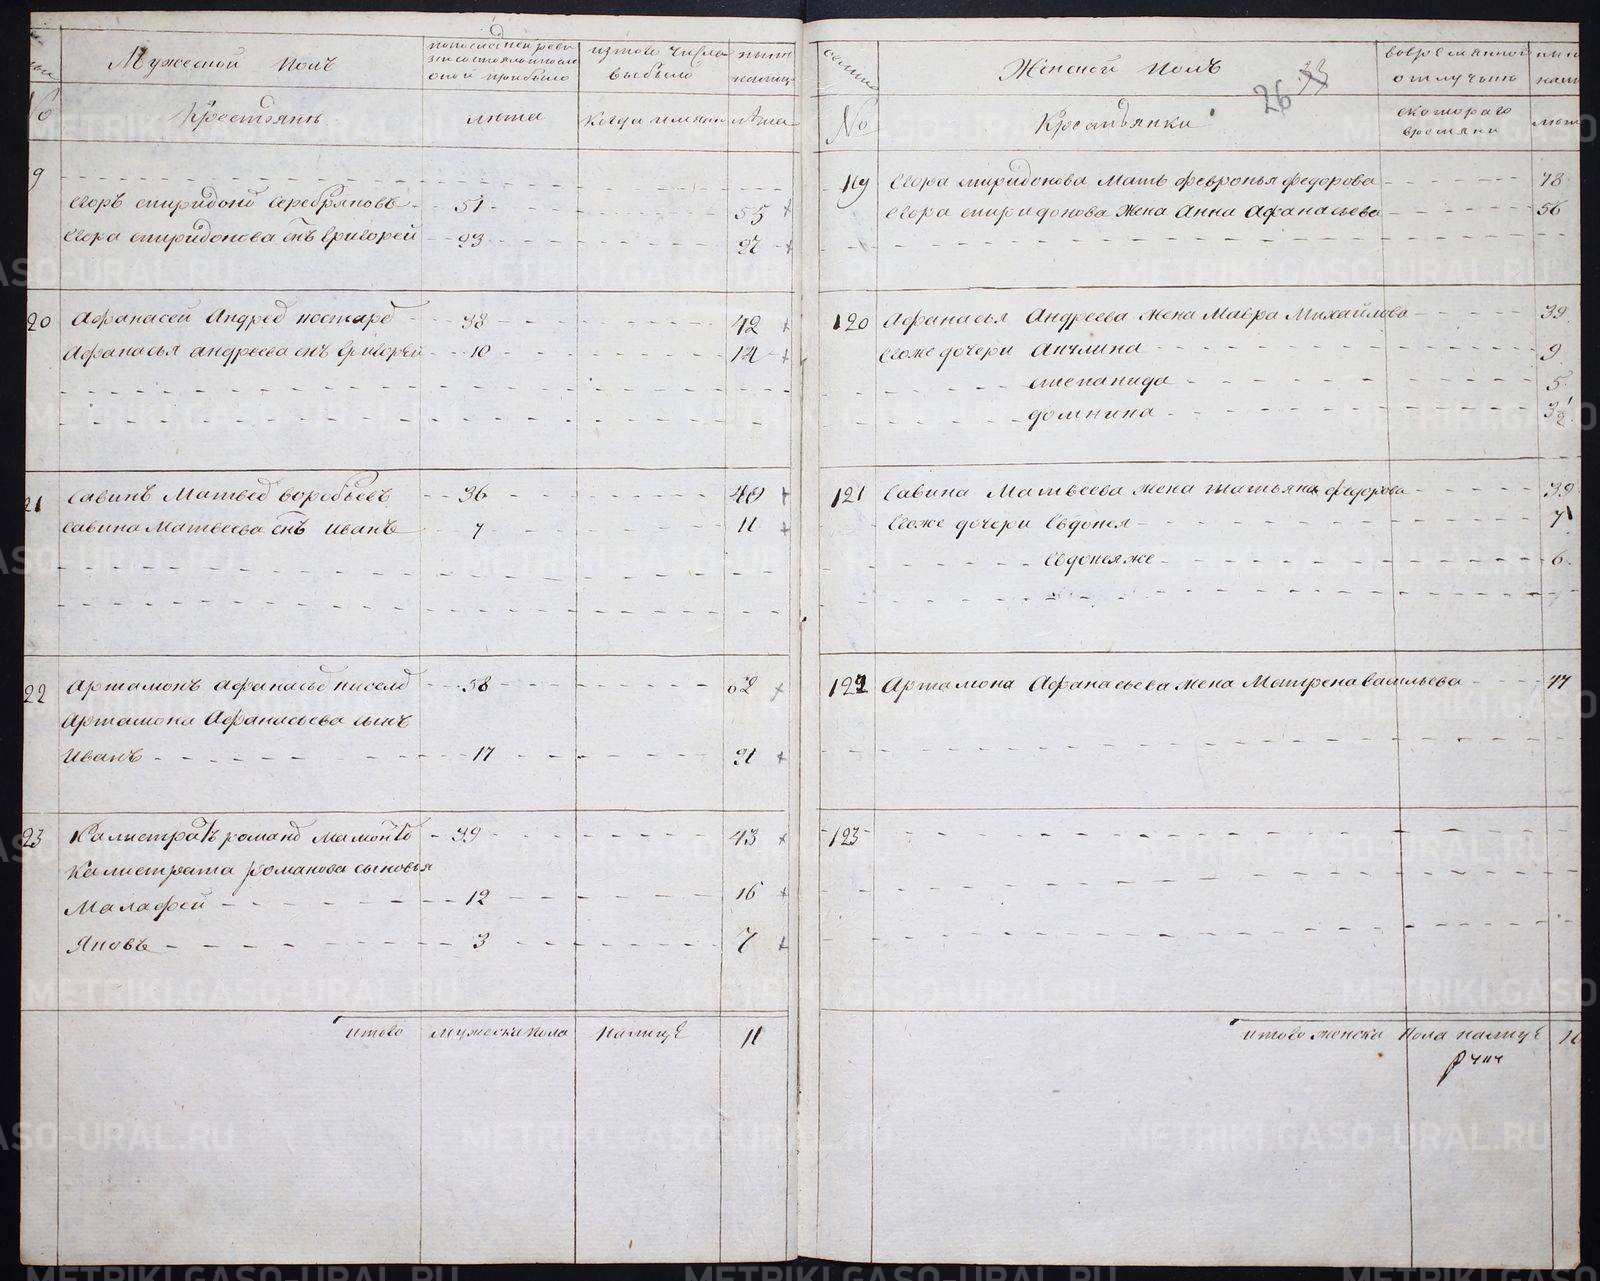 Мужеской полъ
по последней реви
зии состояло и после
оной прибыло
изтого числа
выбыло
ныне
налицо
№
Крестьянъ
лета
когда имянно
лета
9
Егоръ спиридоно Серебряновъ 51 55
Егора спиридонова снъ Григорей 23 27
20 Афанасей Андрее 38 42
Афанасья андреева снъ Григорей 10 14
21 Савинъ Матвее воробьевъ 36 40
Савина Матвеева снъ иванъ 7 11
22 Артамонъ афанасье киселе 58 62
Артамона Афанасьева сынъ
Иванъ 17 21
23 Калистратъ романо мамонто 39 43
Калистрата романова сыновья
Малафей 12 16
Яковъ 3 7
итого мужеска пола налице 11
семьи
Женской полъ
26 33
вовремянной
отлучьке
ныне
нали
№
Крестьянки
скотораго
времяни
лет
119 Егора спиридонова Мать февронья федорова 78
Егора спиридонова жена Анна Афанасьева 56
120 Афанасья Андреева жена Мавра Михайлова 39
Егоже дочери Акулина 9
степанида 5
домнина 3 1/2
121 Савина Матвеева жена татьяна федорова 39
Егоже дочери Евдокея 7
Евдокеяже 6
122 Артамона Афанасьева жена Матрена васильева 47
123
итого женска пола налице